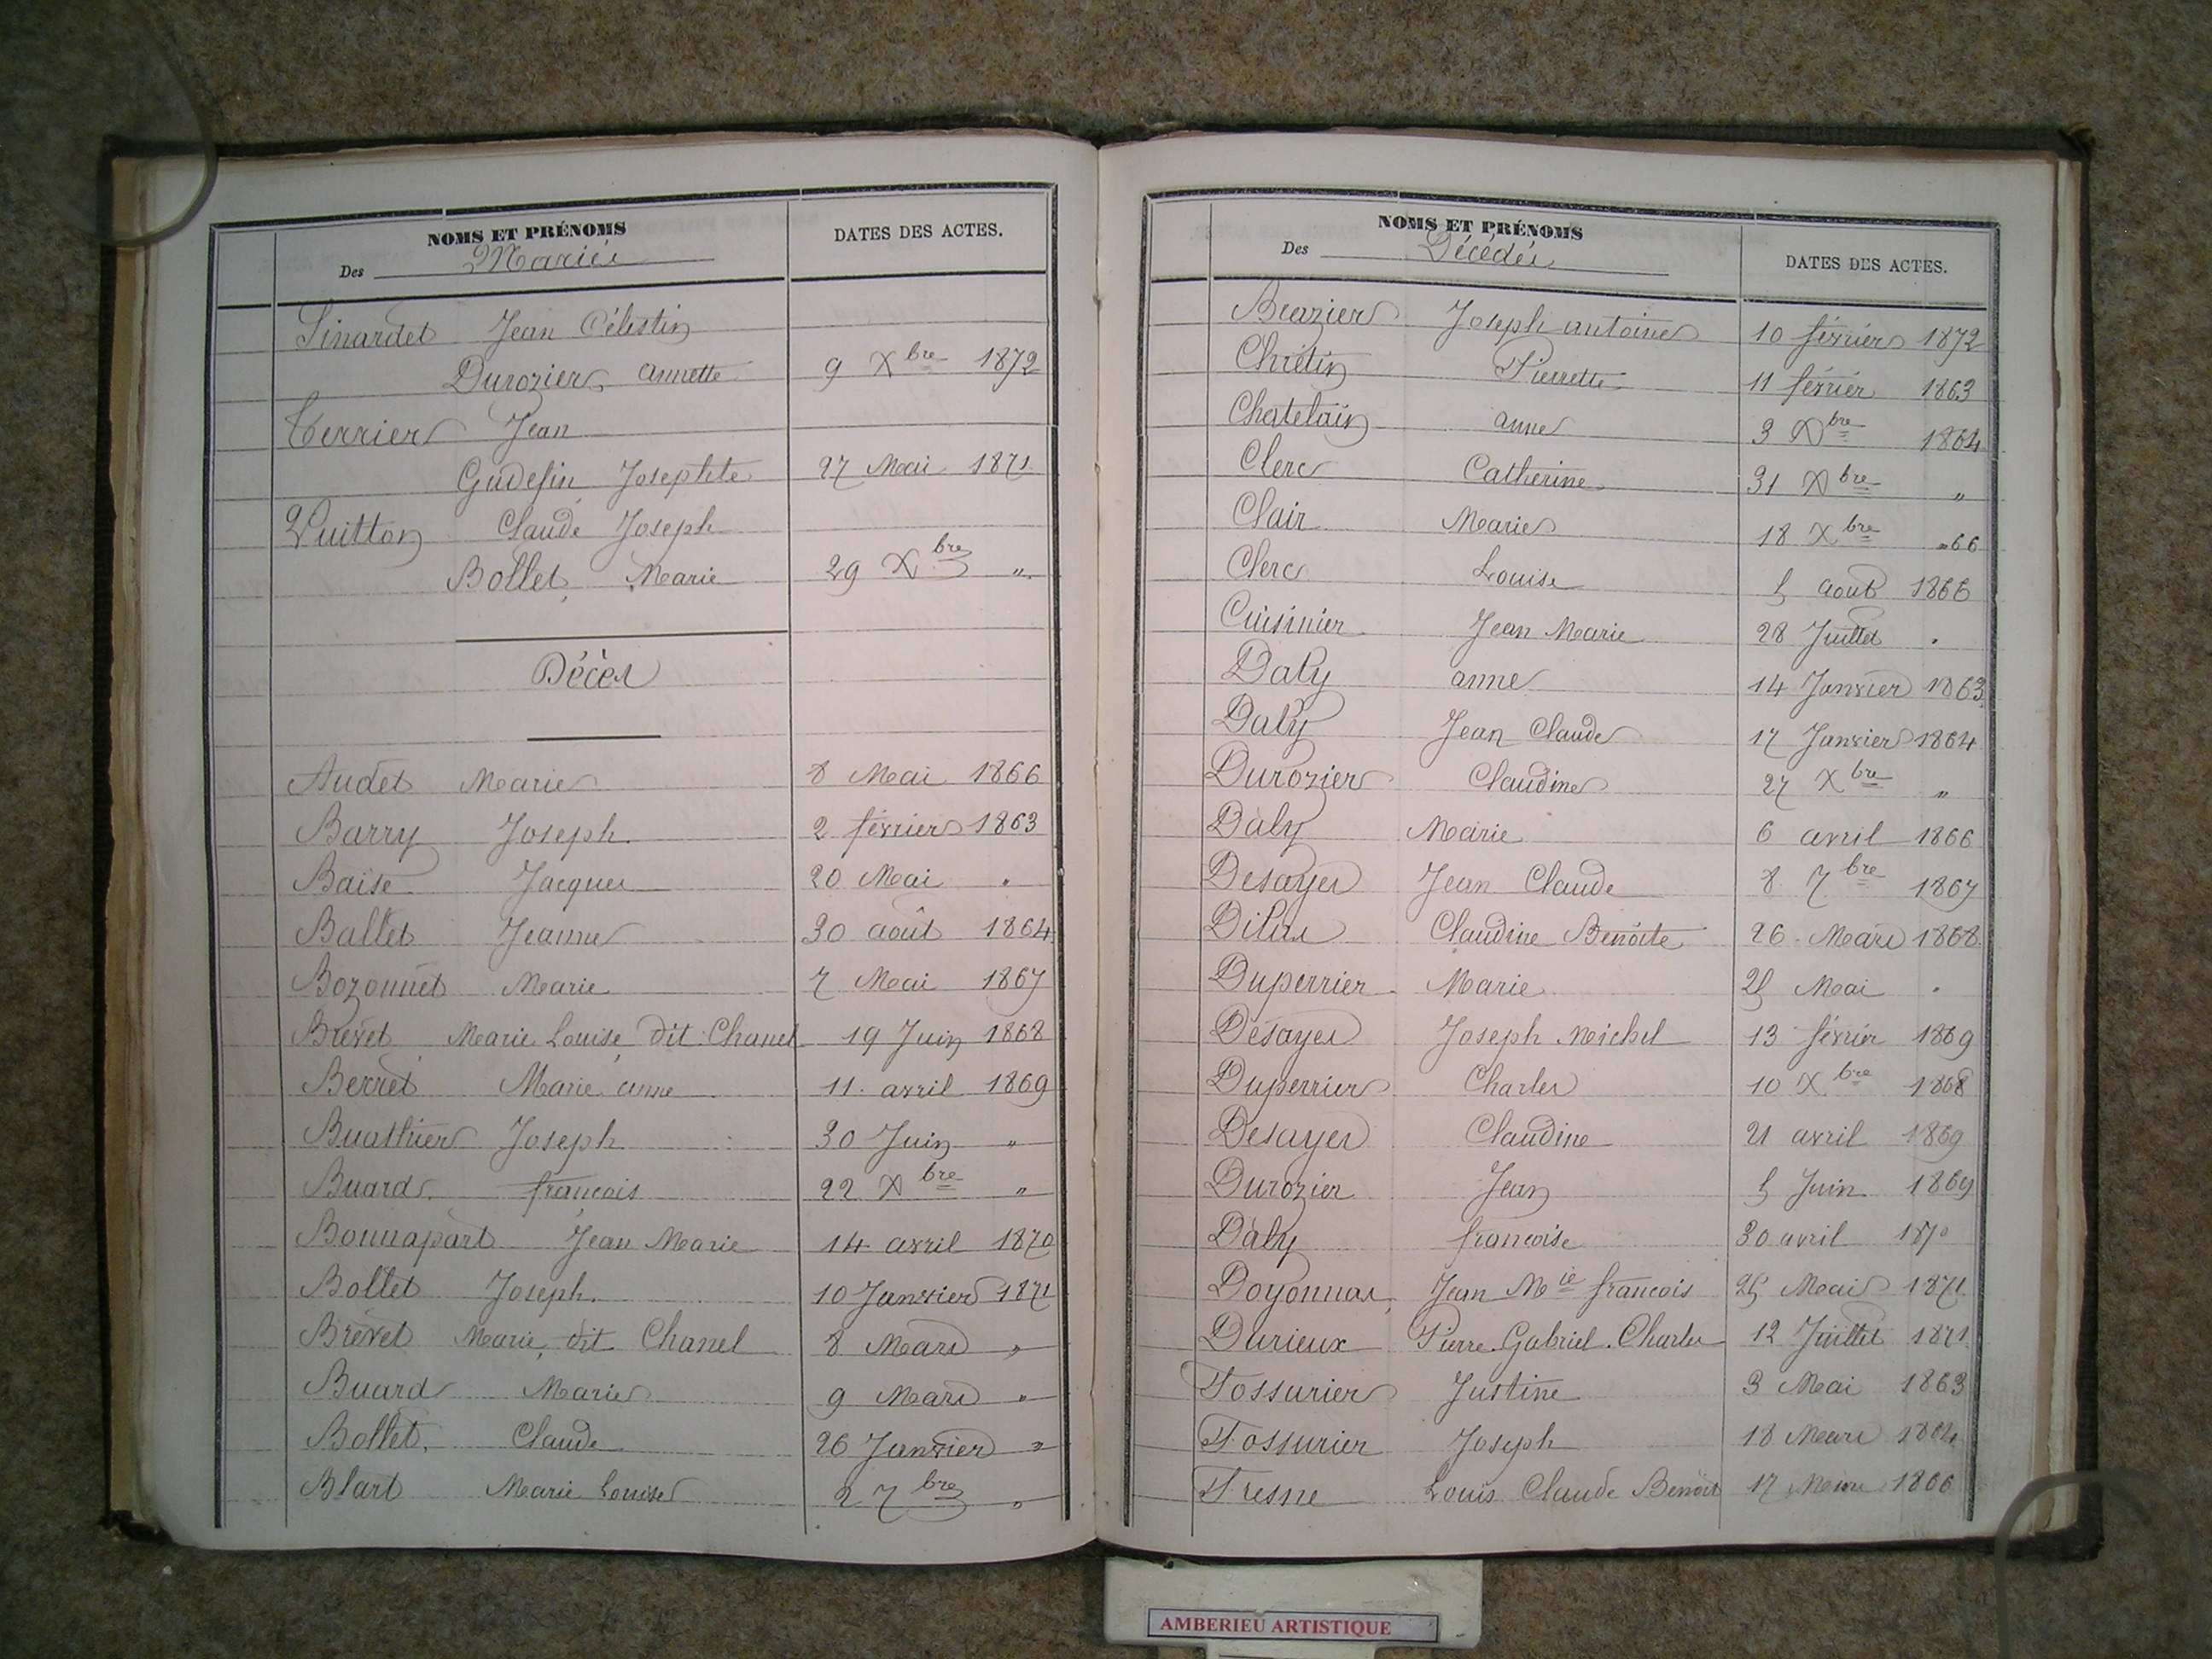 NOMS ET PRÉNOMS
Des Mariés
DATES DES ACTES.
Sinardet Jean Célestin
Durozier, Annette 9 Xbre 1872
Terrier Jean
Gudefin Josephte 27 Mai 1871
Vuitton Claude Joseph
Bollet, Marie 29 Xbre "
Décès
Audet Marie 8 Mai 1866
Barry Joseph 2 février 1863
Baise Jacques 20 Mai "
Ballet Jeanne 30 août 1864
Bozonnet Marie 7 Mai 1867
Brevet Marie Louise dit Chanel 19 Juin 1868
Berret Marie anne 11 avril 1869
Buathier Joseph 30 Juin "
Buard françois 22 Xbre "
Bonnapart Jean Marie 14 avril 1870
Bollet Joseph 10 Janvier 1871
Brevet Marie, dit Chanel 8 Mars "
Buard Marie 9 Mars "
Bollet Claude 26 Janvier "
Blart Marie Louise 2 7bre "
NOMS ET PRÉNOMS
Des Décédés
DATES DES ACTES.
Joseph antoine 10 février 1872
Chrétin Pierrette 11 février 1863
Chatelain anne 3 Xbre 1864
Clerc Catherine 31 Xbre "
Clair Marie 18 Xbre "66
Clerc Louise 5 août 1866
Cuisinier Jean Marie 28 Juillet "
Daly anne 14 Janvier 1863
Daly Jean Claude 17 Janvier 1864
Durozier Claudine 27 Xbre "
Daly Marie 6 avril 1866
Desayes Jean Claude 8 7bre 1867
Dilas Claudine Benoite 26 Mars 1868
Duperrier Marie 25 Mai "
Desayes Joseph Michel 13 février 1869
Duperrier Charles 10 Xbre 1868
Desayes Claudine 21 avril 1869
Durozier Jean 5 Juin 1869
Daly françoise 30 avril 1870
Doyonnax Jean Mie françois 25 Mai 1871
Durieux Pierre Gabriel Charles 12 Juillet 1871
Fossurier Justine 3 Mai 1863
Fossurier Joseph 18 Mars 1864
Fresne Louis Claude Benoit 17 1866
AMBERIEU ARTISTIQUE